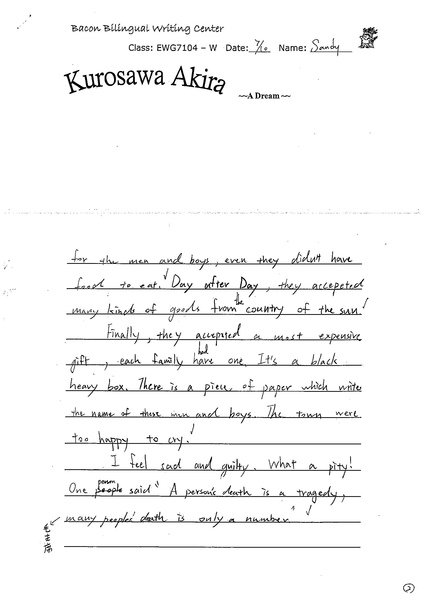 Bacon Bilingual Writing Center
Class: EWG7104 – W Date: 7/10 Name: Sandy
Kurosawa Akira
~~A Dream~~
for the men and boys, even they didn't have
food to eat. Day after Day, they accepeted
many kinds of goods from the country of the sun!
Finally, they accepeted a most expensive
gift, each family had have one. It's a black
heavy box. There is a piece of paper which writes
the name of those men and boys. The town were
too happy to cry!
I feel sad and guilty. What a pity!
One person people said " A person's death is a tragedy,
many peoples' death is only a number. "
2